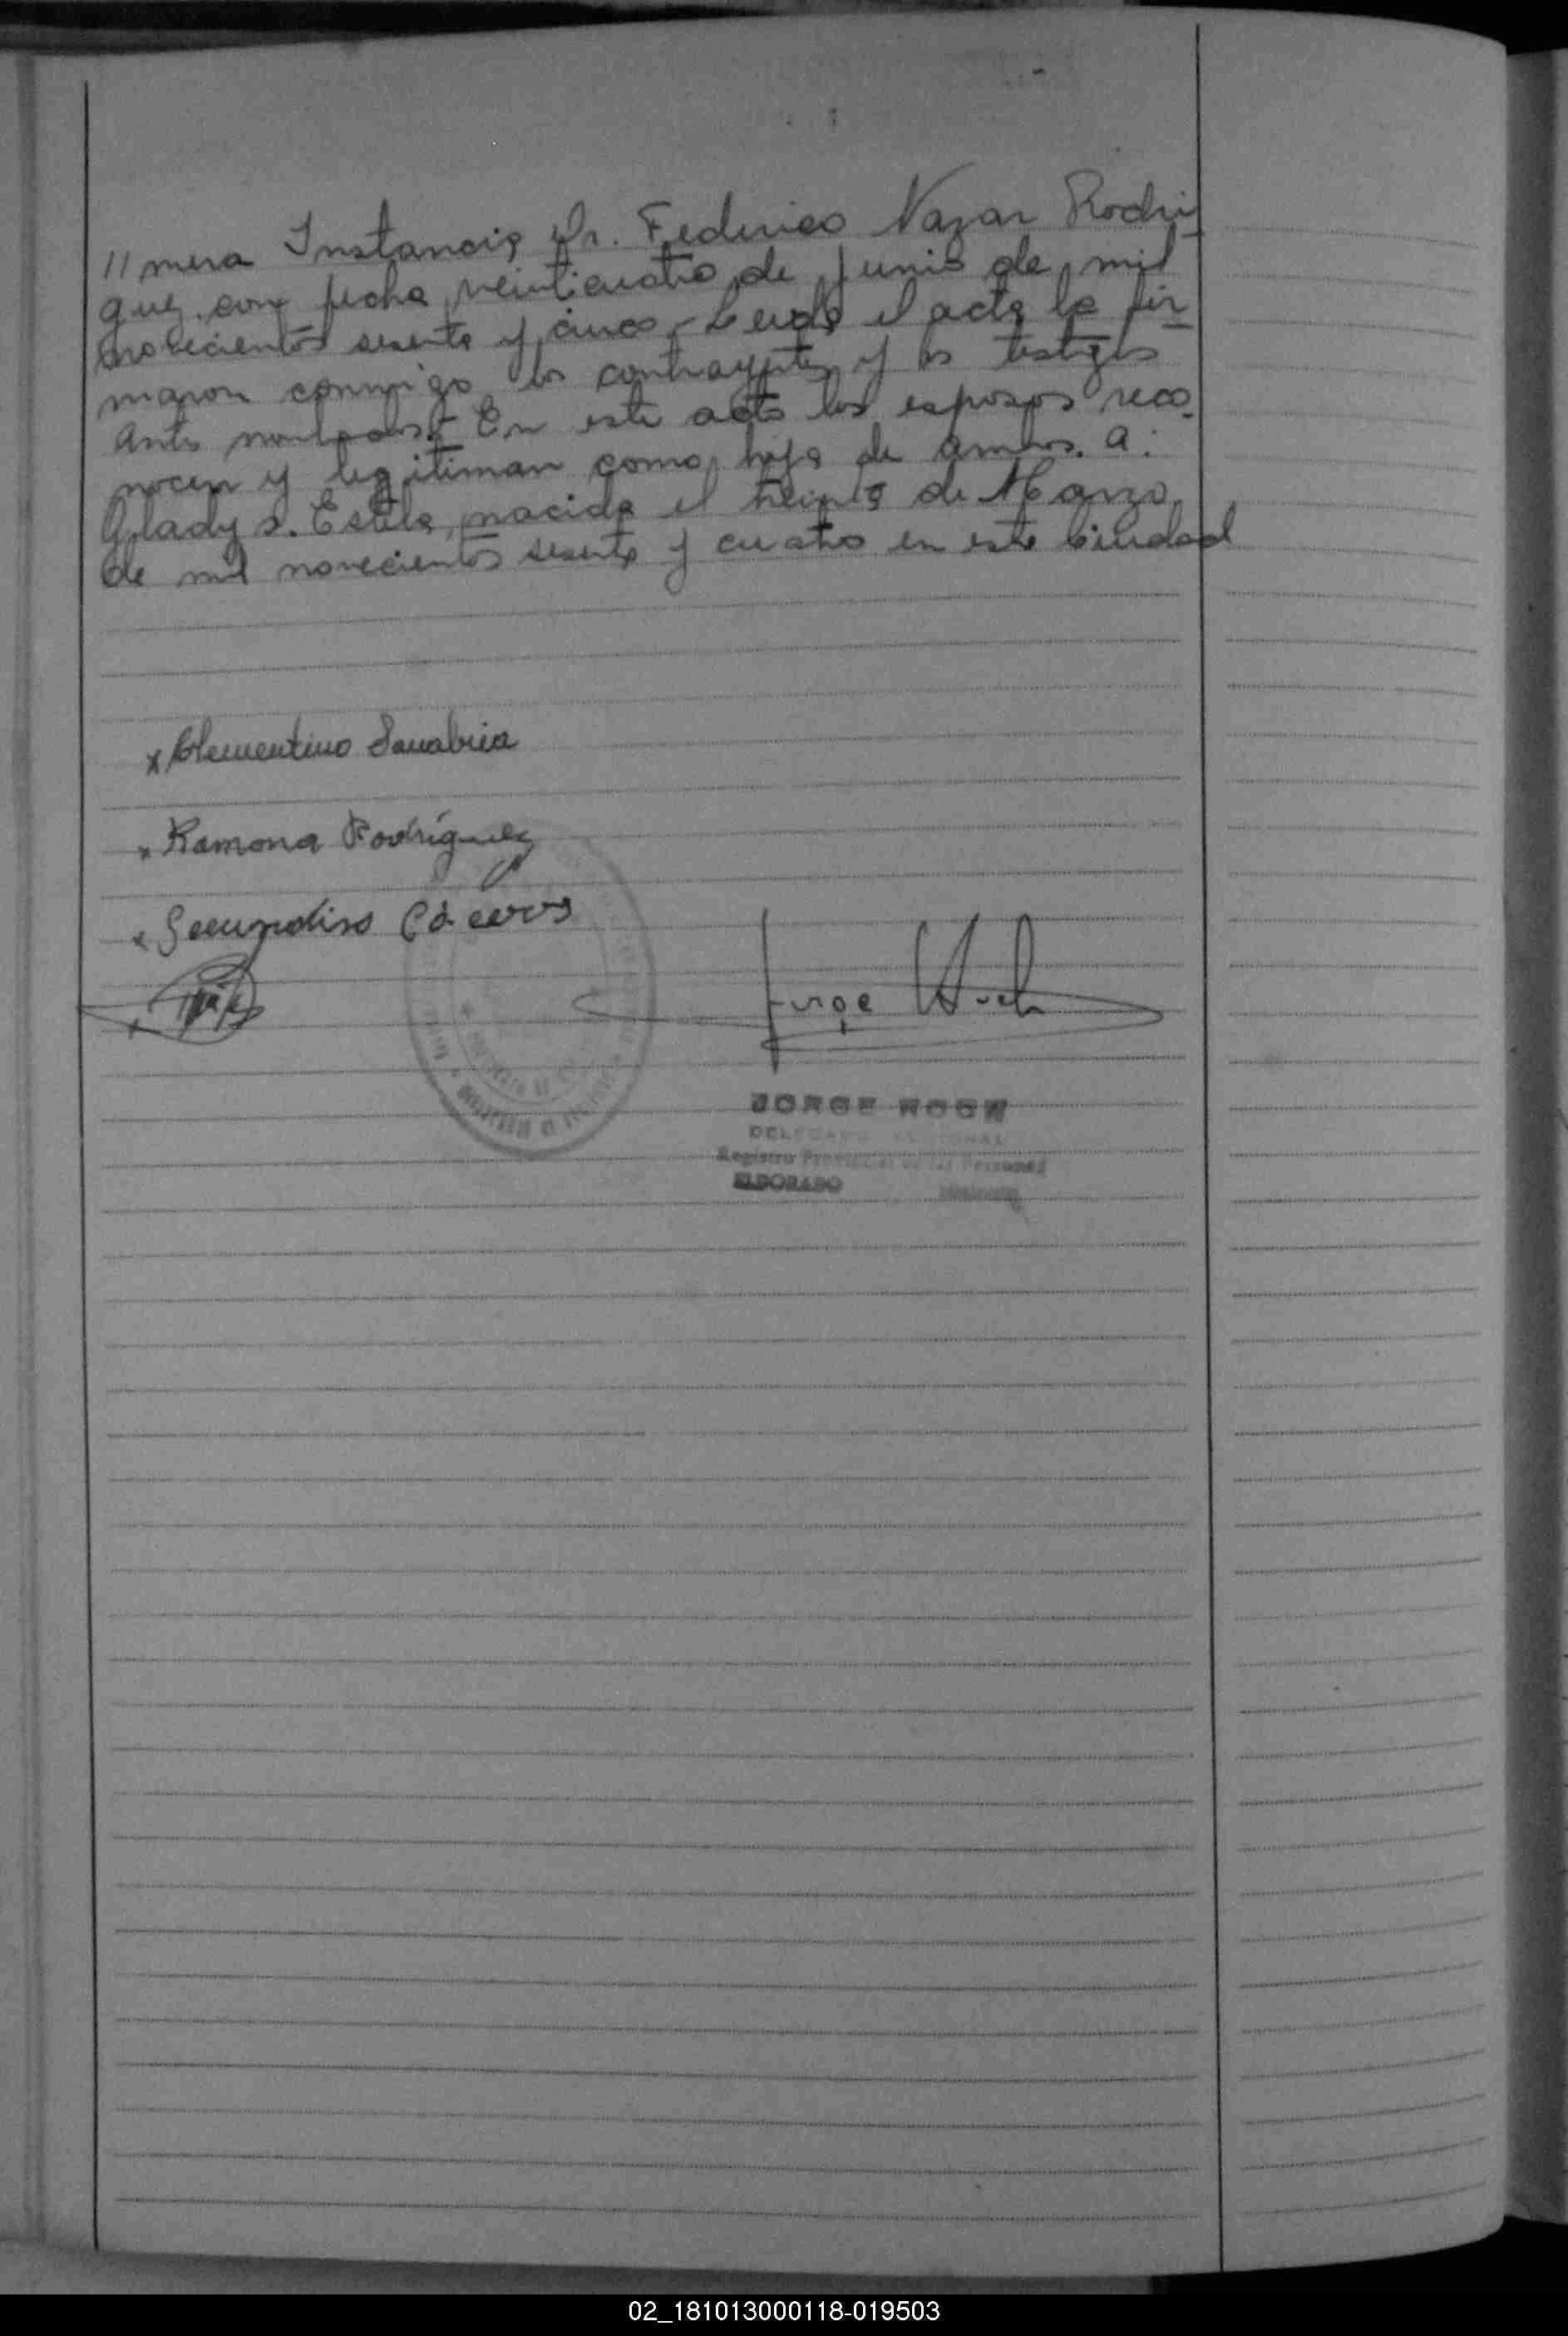 //mera Instancia Dr. Federico Nazar Rodri
guez. con fecha veinticuatro de Junio de mil
novecientos sesenta y cinco.- Leida el acta la fir
maron conmigo los contrayentes y los testigos
antes nombrados.- En este acto los esposos reco
nocen y legitiman como hija de ambos. a:
Gladys. Estela, nacida el treinta de Marzo
de mil novecientos sesenta y cuatro en esta Ciudad
x Clementino Sanabria
x Ramona Rodríguez
x Secundino Cáceres
x
Jorge Hoch
JORGE HOCH
DELEGADO
Registro Provincial de las Personas
ELDORADO
02_181013000118-019503